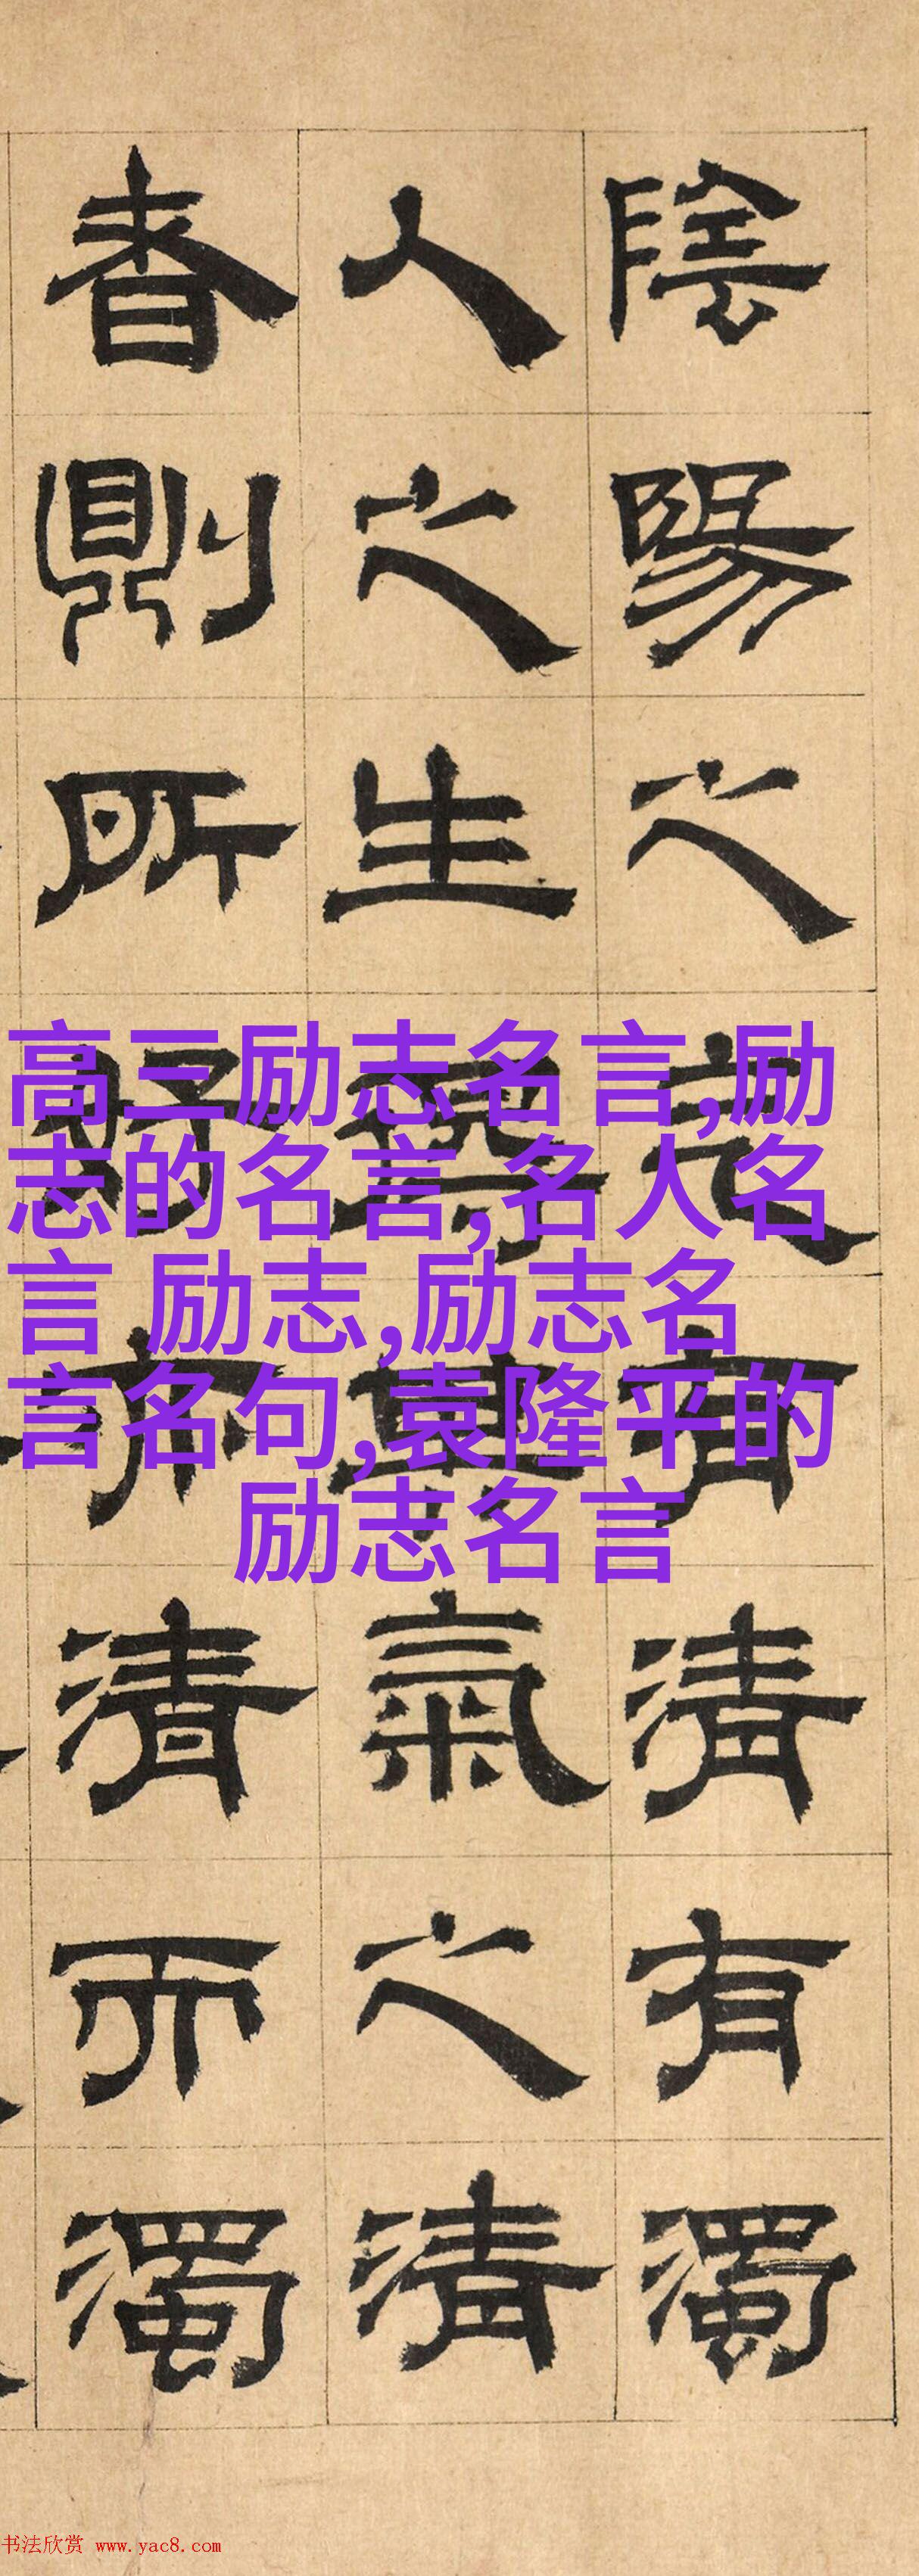 陰陽之有清有濁
人之生氣之清
者則所清而濁
高三励志名言,励
志的名言,名人名
言 励志,励志名
言名句,袁隆平的
励志名言
书法欣赏 www.yac8.com